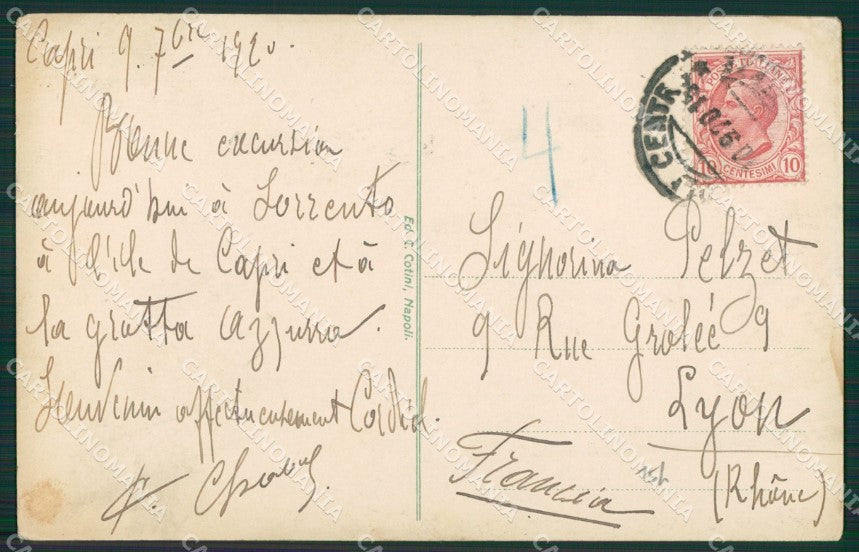 Capri 9. 7bre 1920.
Bonne excursion
aujourd'hui à Sorrento
à l'île de Capri et à
la grotta Azzurra.
Souvenir affectueusement Cordial.
Ed. C. Cotini, Napoli.
4
CENTR
10 CENTESIMI 10
Signorina Pelzet
9 Rue Grolée 9
Lyon
(Rhône)
Francia
CARTOLINOMANIA